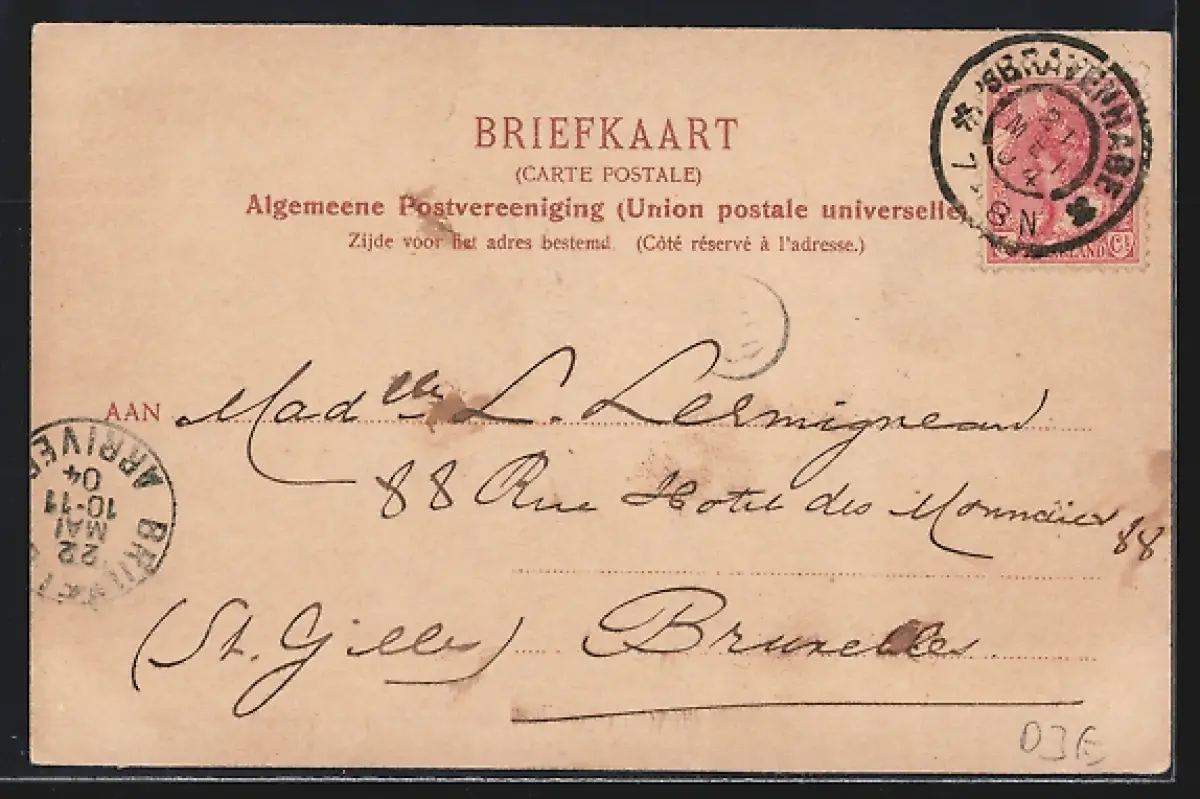 BRIEFKAART
(CARTE POSTALE)
Algemeene Postvereeniging (Union postale universelle)
Zijde voor het adres bestemd. (Côté réservé à l'adresse.)
'SGRAVENHAGE
21 MEI 04
7-8N
Ct
AAN Madelle L. Lermigneau
88 Rue Hotel des Monnaies 88
(St. Gilles) Bruxelles
ARRIVEE
04
10-11
MAI
22
D3E